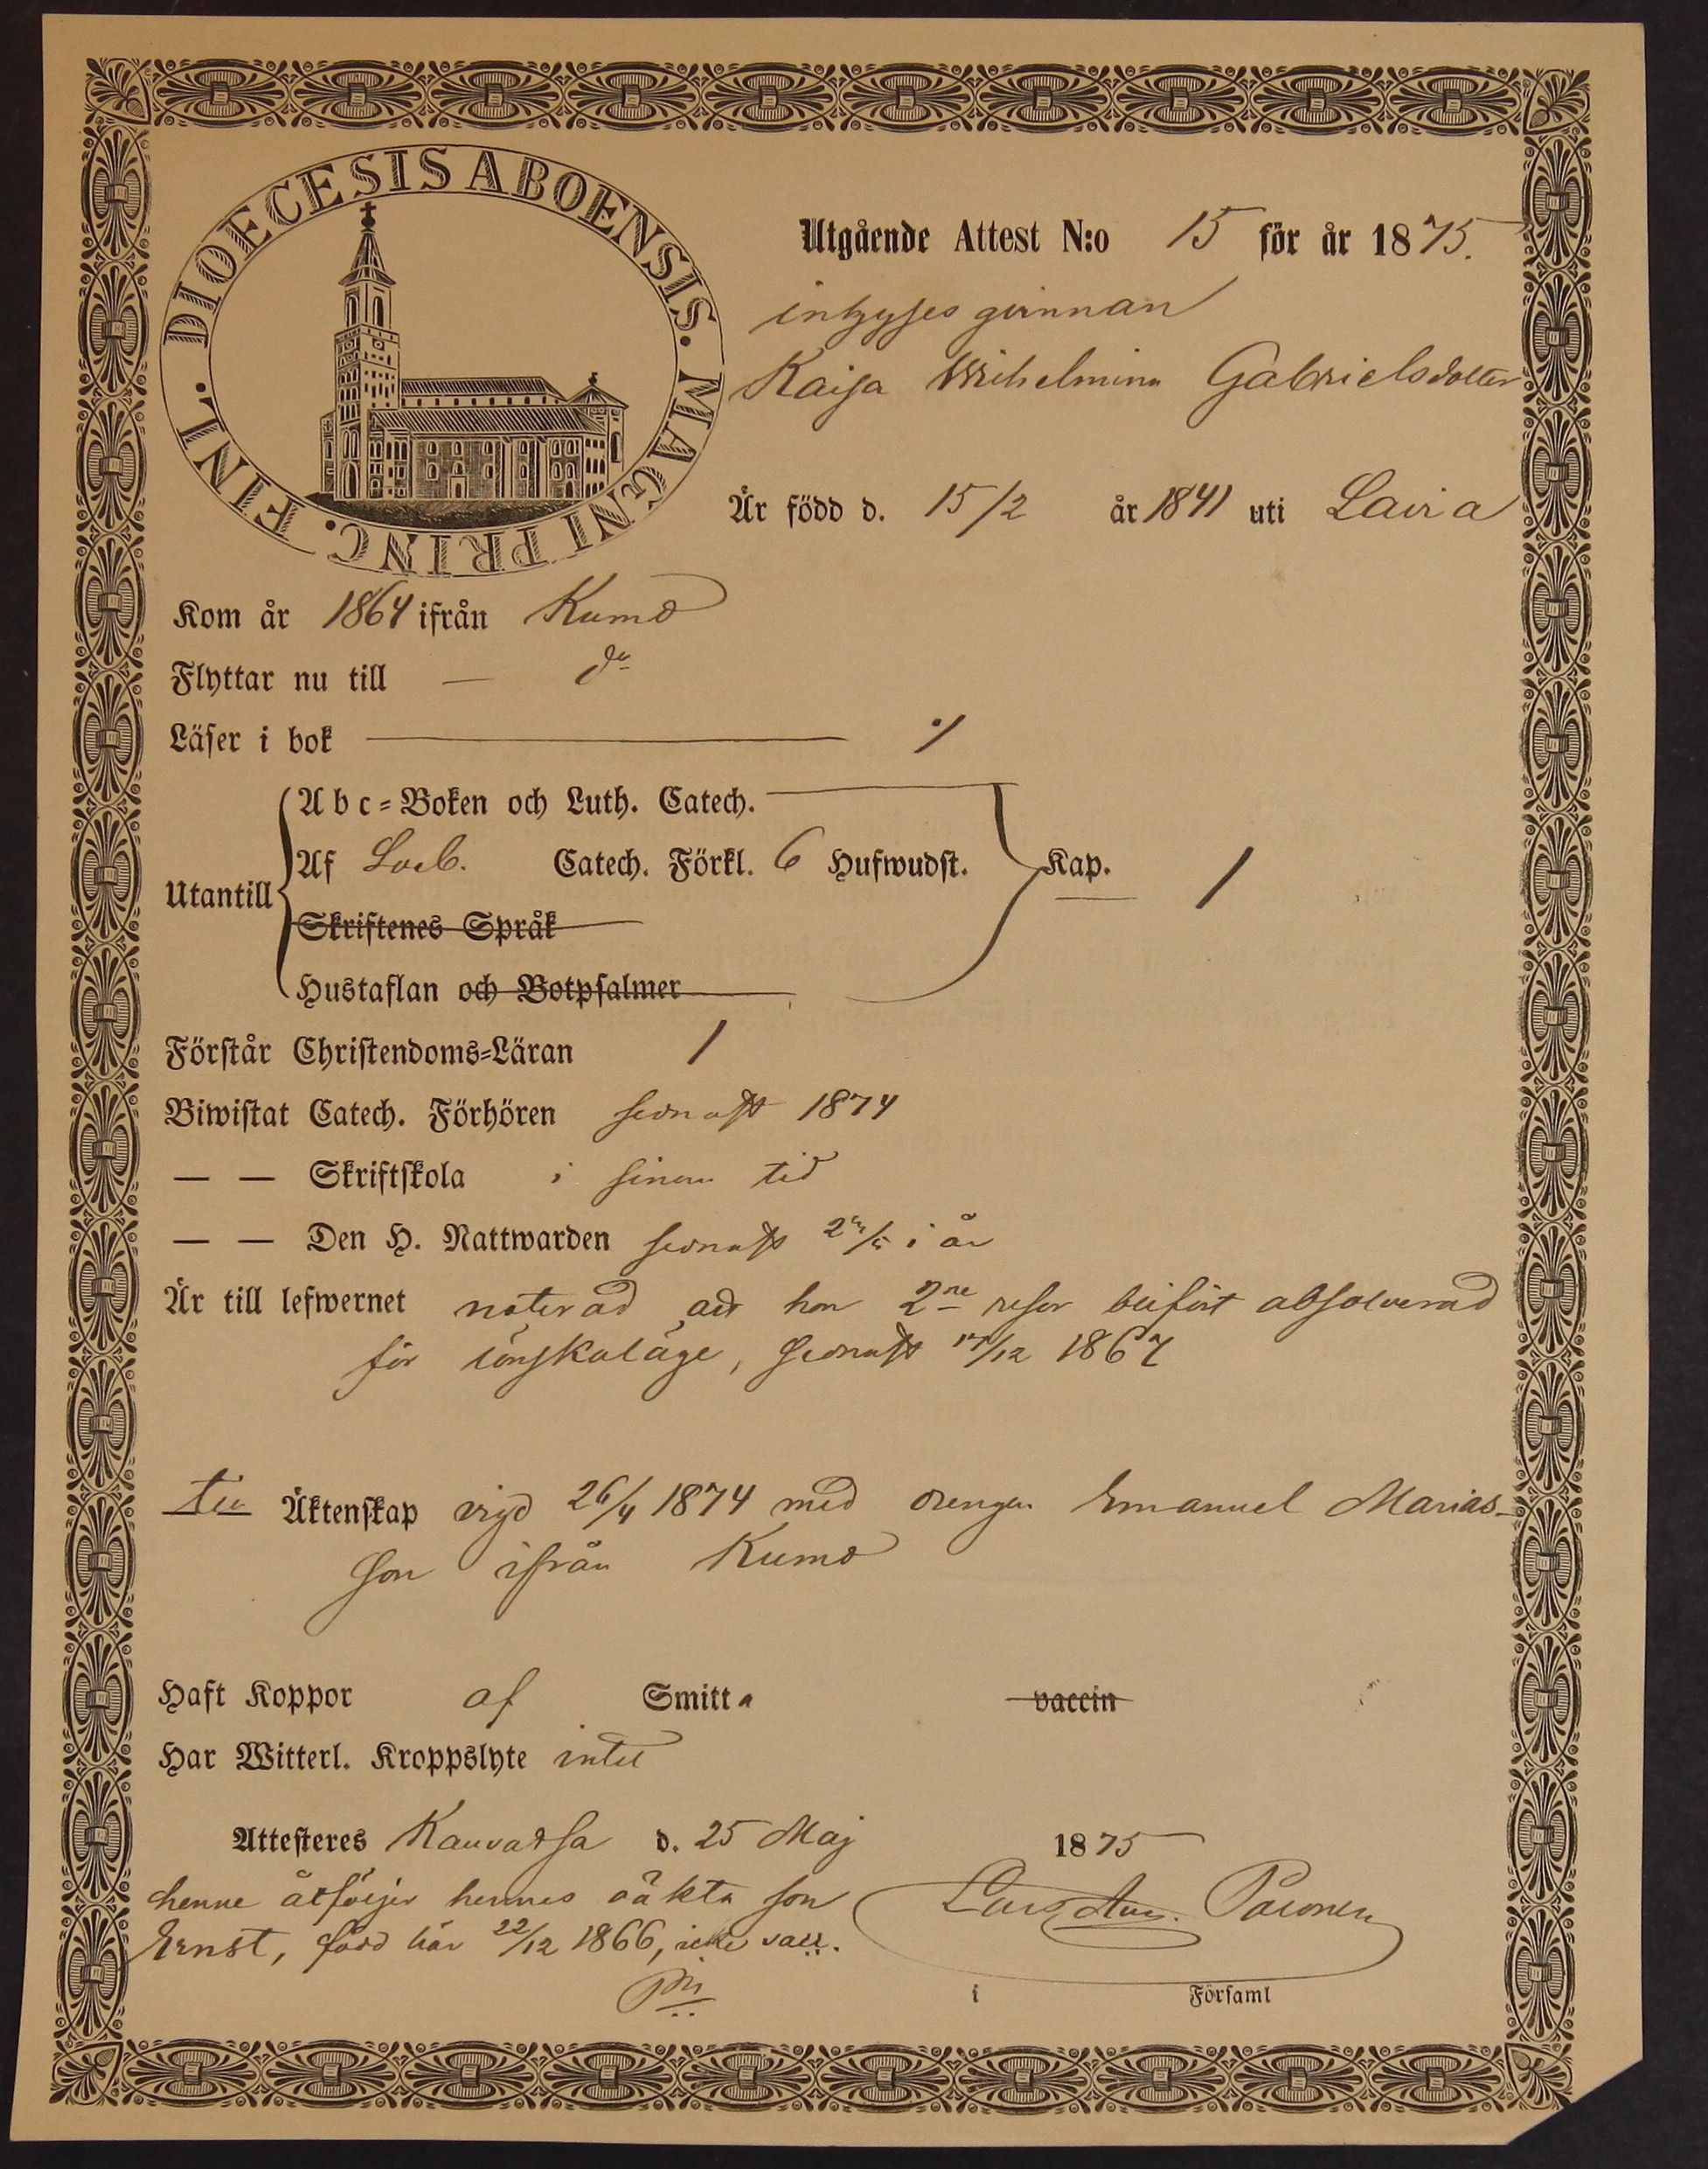 DIOECESIS ABOENSIS. MAGNI PRINC. FINL.
Utgående Attest N:o 15 för år 1875.
inhyses qvinnan
Kaisa Wilhelmina Gabrielsdotter
Är född d. 15/2 år 1841 uti Lavia
Kom år 1864 ifrån Kumo
Flyttar nu till — do
Läser i bok
Abc-Boken och Luth. Catech.
Af Catech. Förkl. 6 Hufwudst. Kap. 1
Utantill
Skriftenes Språk
Hustaflan och Botpsalmer
Förstår Christendoms-Läran 1
Biwistat Catech. Förhören sednast 1874
— — Skriftskola i sinom tid
— — Den H. Nattwarden sednast i år
Är till lefwernet noterad att hon 2ne resor blifvit absolverad
för lönskaläge, sednast 17/12 1867
till Äktenskap vigd 26/4 1874 med drengen Emanuel Marias-
son ifrån Kumo
Haft Koppor af Smitta vaccin
Har Witterl. Kroppslyte intet
Attesteres Kauvatsa d. 25 Maj 1875
henne åtföljer hennes oäkta son
Ernst, född här 22/12 1866, icke vacc.
i Församl